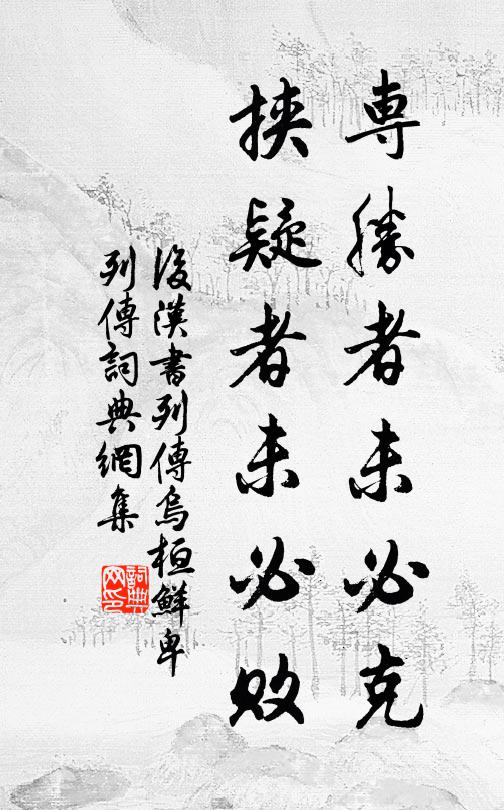 専勝者未必克
挾疑者未必敗
後漢書列傳烏桓鮮卑
列傳詞典網集
詞典网印